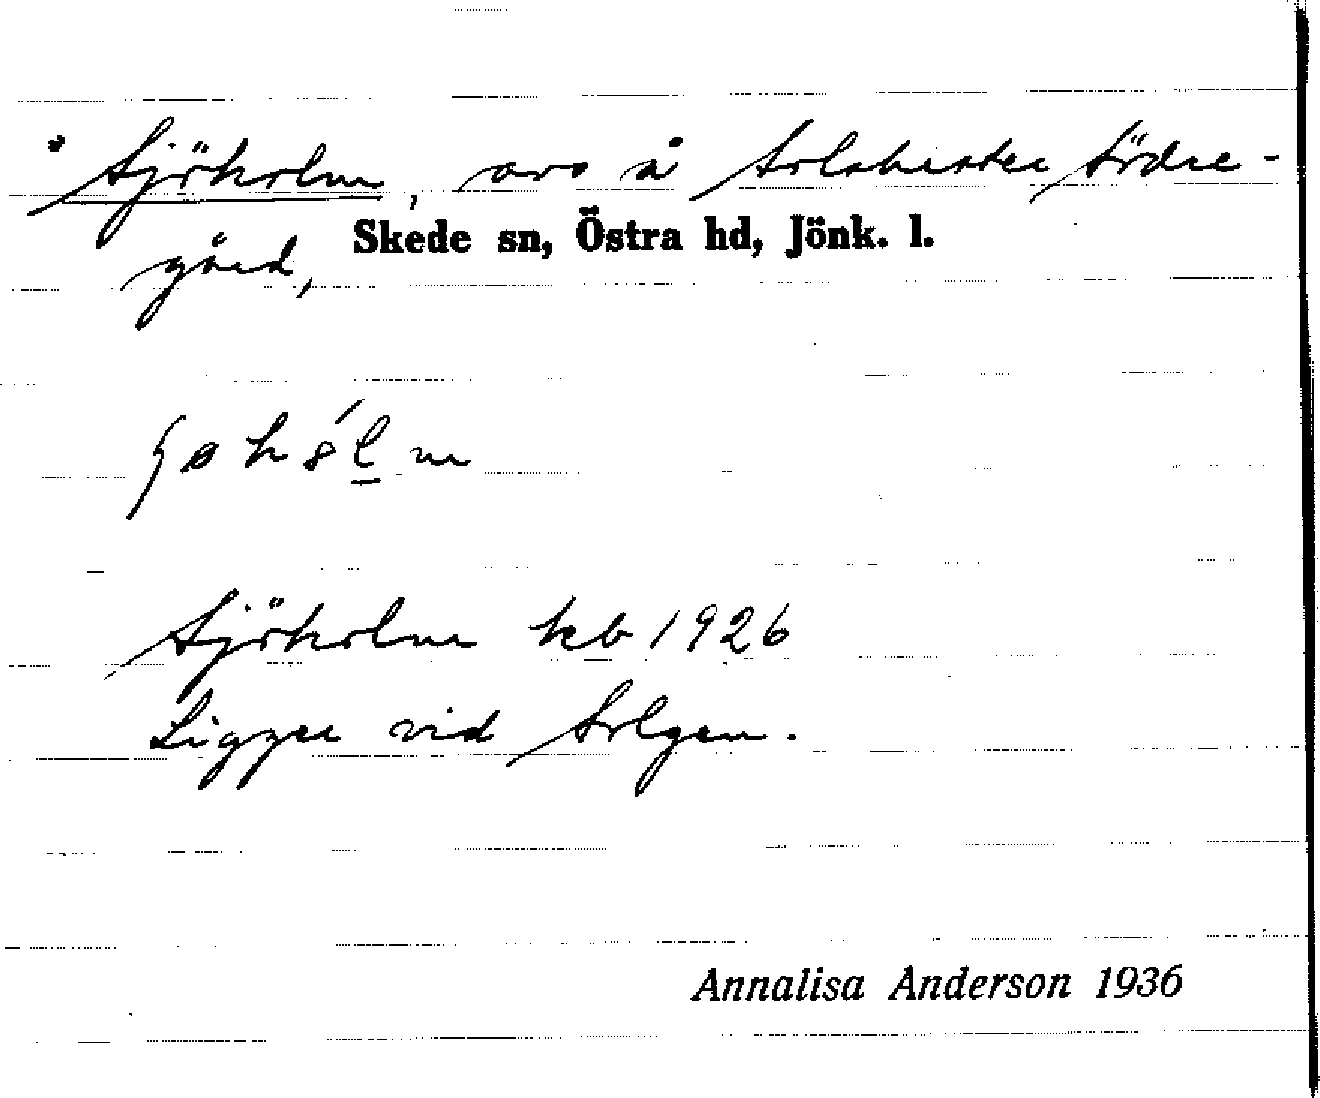 * Sjöholm, avs å Solaberga Södre-
gård, Skede sn, Östra hd, Jönk. l.
Sjöholm kb 1926
Ligger vid Solgen.
Annalisa Anderson 1936